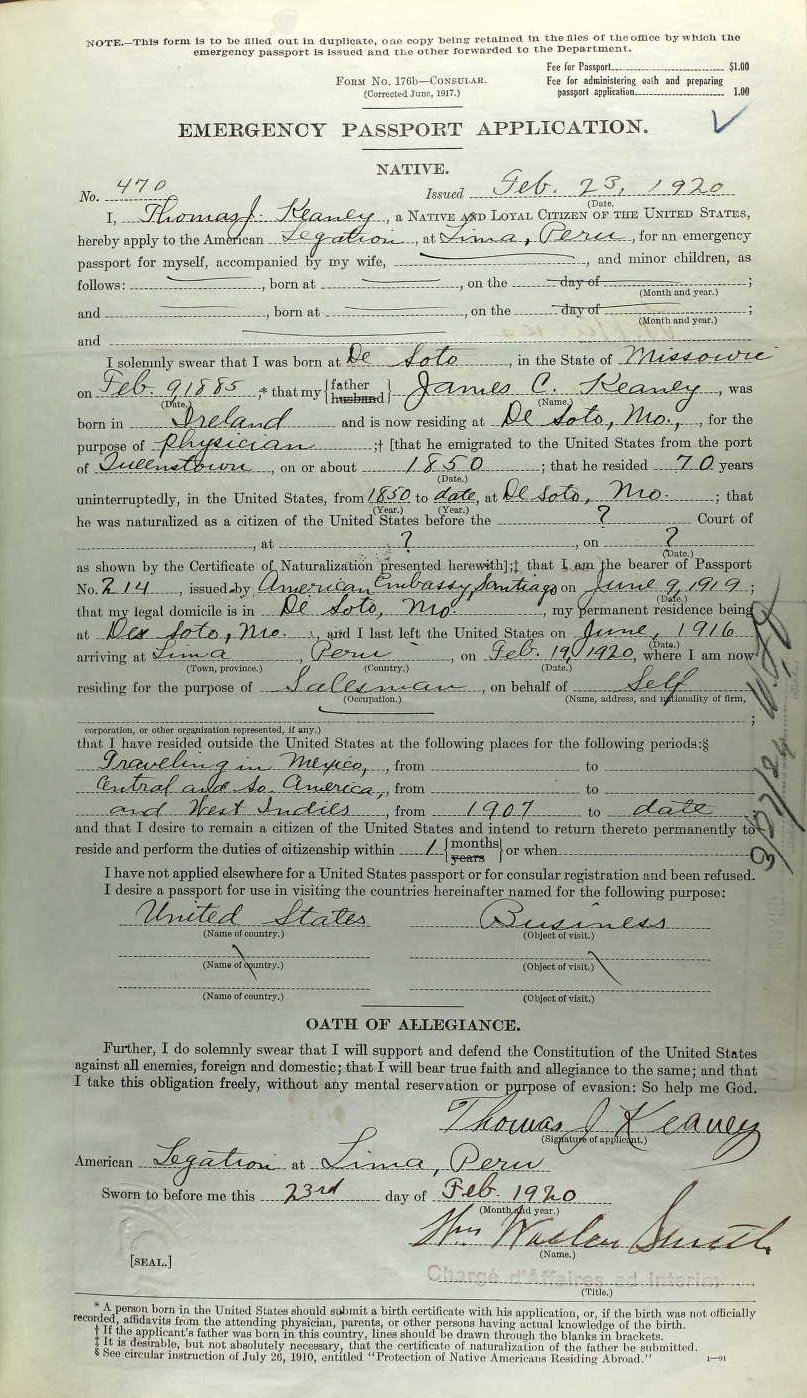 NOTE.—This form is to be filled out in duplicate, one copy being retained in the files of the office by which the
emergency passport is issued and the other forwarded to the Department.
Fee for Passport $1.00
Form No. 176b—Consular.
(Corrected June, 1917.)
Fee for administering oath and preparing
passport application 1.00
EMERGENCY PASSPORT APPLICATION.
NATIVE.
No. 470 Issued Feb. 23, 1920
(Date.)
I, Thomas J. Keaney, a Native and Loyal Citizen of the United States,
hereby apply to the American Legation, at Lima, Peru, for an emergency
passport for myself, accompanied by my wife, , and minor children, as
follows: , born at , on the day of ;
(Month and year.)
and , born at , on the day of ;
(Month and year.)
and
I solemnly swear that I was born at De Soto, in the State of Missouri
on Feb. 9 1885,* that my {father husband} James C. Keaney, was
(Date.) (Name.)
born in Ireland and is now residing at De Soto, Mo., for the
purpose of physician ;† [that he emigrated to the United States from the port
of Queenstown, on or about 1850; that he resided 70 years
(Date.)
uninterruptedly, in the United States, from 1850 to date, at De Soto, Mo. ; that
(Year.) (Year.)
he was naturalized as a citizen of the United States before the ? Court of
, at ? , on ?
(Date.)
as shown by the Certificate of Naturalization presented herewith];‡ that I am the bearer of Passport
No. 214, issued by American Embassy, Santiago on June 9, 1919;
(Date.)
that my legal domicile is in De Soto, Mo. , my permanent residence being
at De Soto, Mo. , and I last left the United States on June, 1916
(Date.)
arriving at Lima, Peru, on Feb. 19, 1920, where I am now
(Town, province.) (Country.) (Date.)
residing for the purpose of Salesman, on behalf of Self
(Occupation.) (Name, address, and nationality of firm,
;
corporation, or other organization represented, if any.)
that I have resided outside the United States at the following places for the following periods:§
Traveling in Mexico, , from to
Central and So. America, , from to
and West Indies , from 1907 to date
and that I desire to remain a citizen of the United States and intend to return thereto permanently to
reside and perform the duties of citizenship within 1 {months years} or when
I have not applied elsewhere for a United States passport or for consular registration and been refused.
I desire a passport for use in visiting the countries hereinafter named for the following purpose:
United States Business
(Name of country.) (Object of visit.)
(Name of country.) (Object of visit.)
(Name of country.) (Object of visit.)
OATH OF ALLEGIANCE.
Further, I do solemnly swear that I will support and defend the Constitution of the United States
against all enemies, foreign and domestic; that I will bear true faith and allegiance to the same; and that
I take this obligation freely, without any mental reservation or purpose of evasion: So help me God.
Thomas J Keaney
(Signature of applicant.)
American Legation at Lima, Peru
Sworn to before me this 23rd day of Feb. 1920
(Month and year.)
Wm Walker Smith
(Name.)
[SEAL.]
Chargé d'Affaires ad interim
(Title.)
* A person born in the United States should submit a birth certificate with his application, or, if the birth was not officially
recorded, affidavits from the attending physician, parents, or other persons having actual knowledge of the birth.
† If the applicant's father was born in this country, lines should be drawn through the blanks in brackets.
‡ It is desirable, but not absolutely necessary, that the certificate of naturalization of the father be submitted.
§ See circular instruction of July 26, 1910, entitled "Protection of Native Americans Residing Abroad." 1—91